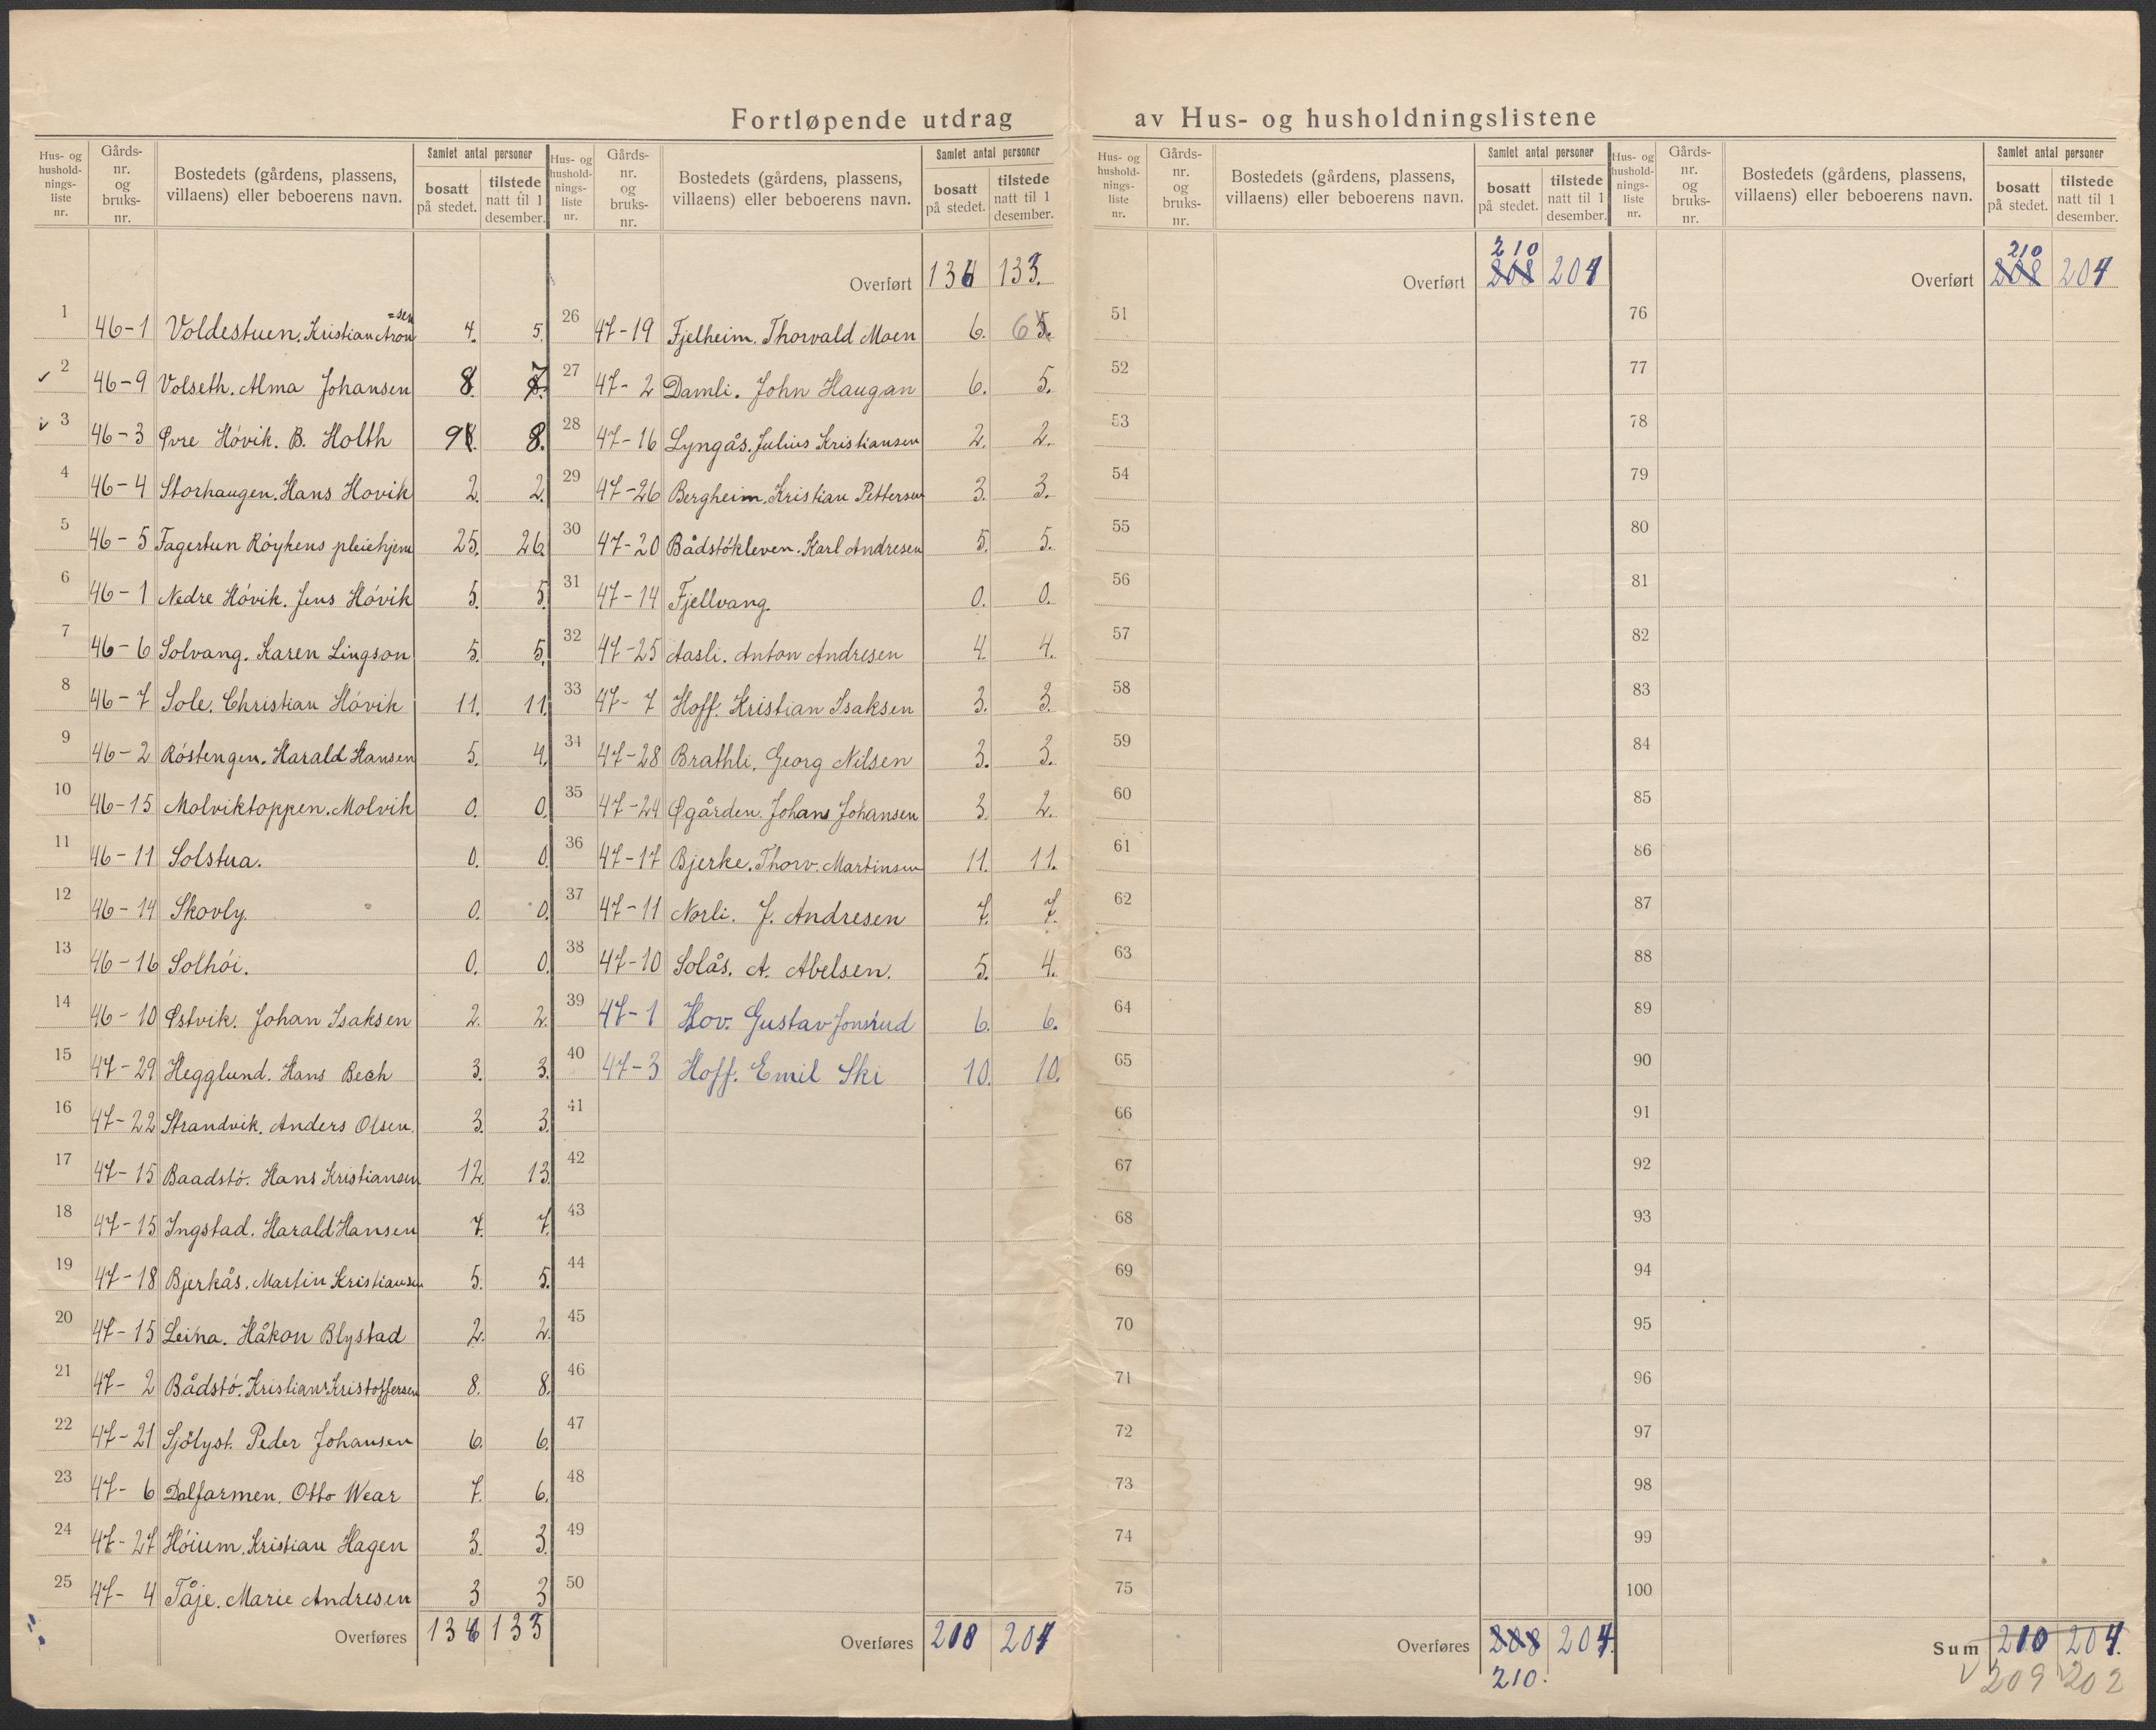 Fortløpende utdrag av Hus- og husholdningslistene
Hus- og hushold- nings- liste nr. | Gårds- nr. og bruks- nr. | Bostedets (gårdens, plassens, villaens) eller beboerens navn. | Samlet antal personer | bosatt på stedet. | tilstede natt til 1 desember.
1 46-1 Voldestuen. Kristian Aron=sen 4. 5.
2 46-9 Volseth. Alma Johansen 8. 7.
3 46-3 Øvre Hóvik. B. Holth 9 8.
4 46-4 Storhaugen. Hans Hovik 2. 2.
5 46-5 Fagertun Róykens pleiehjem 25. 26.
6 46-1 Nedre Hóvik. Jens Hóvik 5. 5.
7 46-6 Solvang. Karen Lingson 5. 5.
8 46-7 Sole. Christian Hóvik 11. 11.
9 46-2 Róstengen. Harald Hansen 5. 4.
10 46-15 Molviktoppen. Molvik 0. 0.
11 46-11 Solstua. 0. 0.
12 46-14 Skovly. 0. 0.
13 46-16 Solhói. 0. 0.
14 46-10 Østvik. Johan Isaksen 2. 2.
15 47-29 Hegglund. Hans Bech 3. 3.
16 47-22 Strandvik. Anders Olsen. 3. 3.
17 47-15 Baadstó. Hans Kristiansen 12. 13.
18 47-15 Ingstad. Harald Hansen 7. 7.
19 47-18 Bjerkås. Martin Kristiansen 5. 5.
20 47-15 Leina. Håkon Blystad 2. 2.
21 47-2 Bådstó. Kristian Kristoffersen 8. 8.
22 47-21 Sjólyst. Peder Johansen 6. 6.
23 47-6 Dalfarmen. Otto Wear 7. 6.
24 47-27 Hóium. Kristian Hagen 3. 3.
25 47-4 Tåje. Marie Andresen 3 3
Overføres 136 133
Hus- og hushold- nings- liste nr. | Gårds- nr. og bruks- nr. | Bostedets (gårdens, plassens, villaens) eller beboerens navn. | Samlet antal personer | bosatt på stedet. | tilstede natt til 1 desember.
Overført 136 133.
26 47-19 Fjelheim. Thorvald Moen 6. 6 5.
27 47-2 Damli. John Haugan 6. 5.
28 47-16 Lyngås. Julius Kristiansen 2. 2.
29 47-26 Bergheim. Kristian Pettersen 3. 3.
30 47-20 Bådstókleven. Karl Andresen 5. 5.
31 47-14 Fjellvang. 0. 0.
32 47-25 Aasli. Anton Andresen 4. 4.
33 47-7 Hoff. Kristian Isaksen 3. 3.
34 47-28 Brathli. Georg Nilsen 3. 3.
35 47-24 Øgården. Johans Johansen 3. 2.
36 47-17 Bjerke. Thorv. Martinsen 11. 11.
37 47-11 Norli. J. Andresen 7. 7.
38 47-10 Solås. A. Abelsen. 5. 4.
39 47-1 Hov. Gustav Jonsrud 6. 6.
40 47-3 Hoff. Emil Ski 10. 10.
41
42
43
44
45
46
47
48
49
50
Overføres 210 204
Hus- og hushold- nings- liste nr. | Gårds- nr. og bruks- nr. | Bostedets (gårdens, plassens, villaens) eller beboerens navn. | Samlet antal personer | bosatt på stedet. | tilstede natt til 1 desember.
210
Overført 208 204
51
52
53
54
55
56
57
58
59
60
61
62
63
64
65
66
67
68
69
70
71
72
73
74
75
Overføres 208 204.
210.
Hus- og hushold- nings- liste nr. | Gårds- nr. og bruks- nr. | Bostedets (gårdens, plassens, villaens) eller beboerens navn. | Samlet antal personer | bosatt på stedet. | tilstede natt til 1 desember.
210
Overført 208 204
76
77
78
79
80
81
82
83
84
85
86
87
88
89
90
91
92
93
94
95
96
97
98
99
100
Sum 210 204.
209 202